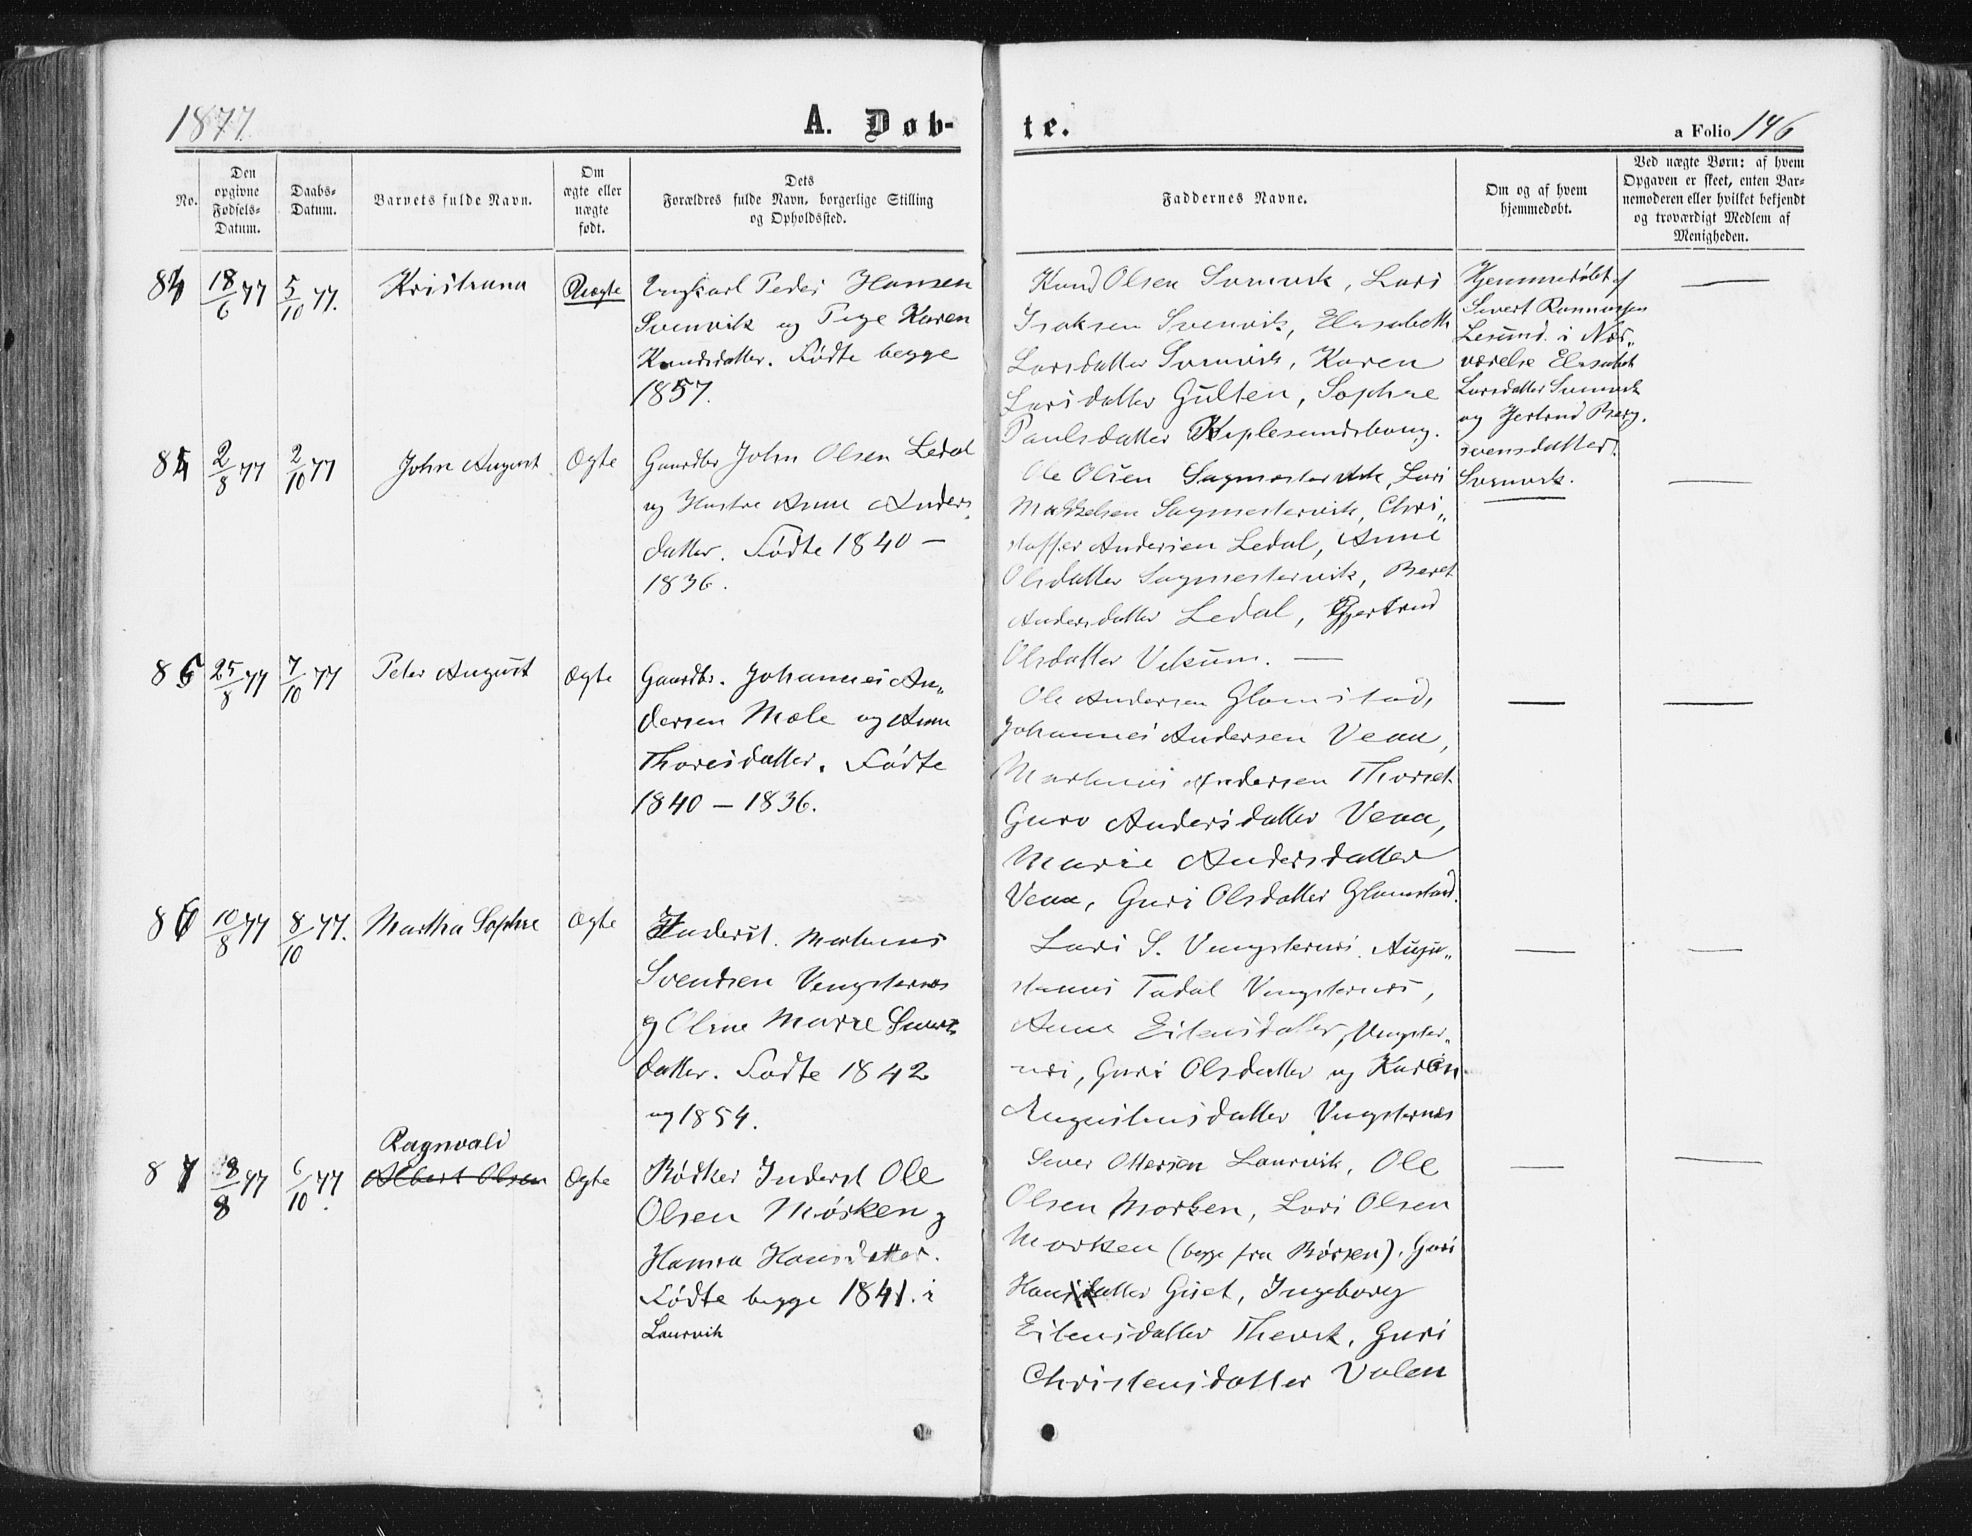 1877.
A. Døb-
te.
a Folio 146
No.
Den
opgivne
Fødsels-
Datum.
Daabs-
Datum.
Barnets fulde Navn.
Om
ægte eller
uægte
født.
Dets
Forældres fulde Navn, borgerlige Stilling
og Opholdssted.
Faddernes Navne.
Om og af hvem
hjemmedøbt.
Ved uægte Børn: af hvem
Opgaven er skeet, enten Bar-
nemoderen eller hvilket bekjendt
og troværdigt Medlem af
Menigheden.
18/6 77
5/10 77.
Uægte
Ungkarl Peder Hansen
Svenvik og Pige Karen
Knudsdatter. Fødte begge
1857.
Knud Olsen Svenvik, Lars
Isaksen Svenvik, Elisabeth
Larsdatter Svenvik, Karen
Larsdatter Gulten, Sophie
Paulsdatter
Hjemmedøbt af
Sivert
i Nær„
værelse Elisabet
Larsdatter Svenvik
og Gjertrud
Svensdatter
Svenvik.
2/8 77
2/10 77
John August
Ægte
Gaardbr John Olsen Ledal
og Hustru Anne Anders
datter. Fødte 1840 —
1836.
Ole Olsen Sagmestervik, Lars
Sagmestervik, Chri„
stoffer Andersen Ledal, Anne
Olsdatter Sagmestervik, Beret
Andersdatter Ledal, Gjertrud
Olsdatter
25/8 77
7/10 77
Peter August
Ægte
Gaardbr. Johannes An„
dersen Mæle og Anne
Thoresdatter. Fødte
1840 — 1836.
Ole Andersen Glamstad,
Johannes Andersen Veaa,
Martinus Andersen Thorset
Guro Andersdatter Veaa,
Marie Andersdatter
Veaa, Guri Olsdatter Glamstad.
86
10/8 77
8/10 77.
Martha Sophie
Ægte
Inderst. Martinus
Svendsen Vengsternes
og Oline Marie Sivers
datter. Fødte 1842
og 1854.
Lars S. Vengsternes. Augu„
stinus Tadal Vengsternes,
Anne Eilensdatter, Vengster„
nes, Guri Olsdatter og Karen
Augustinusdatter Vengsternes
87
8/8 77
6/10 77.
Ragnvald
Albert Olsen
Ægte
Bødker Inderst Ole
Olsen Mørken og
Hanna Hansdatter.
Fødte begge 1841. i
Laurvik
Siver Ottersen Laurvik, Ole
Olsen Morken, Lars Olsen
Morken (begge fra Børsen). Guri
Hansdatter Giset, Ingeborg
Eilensdatter Guri
Christensdatter Valen